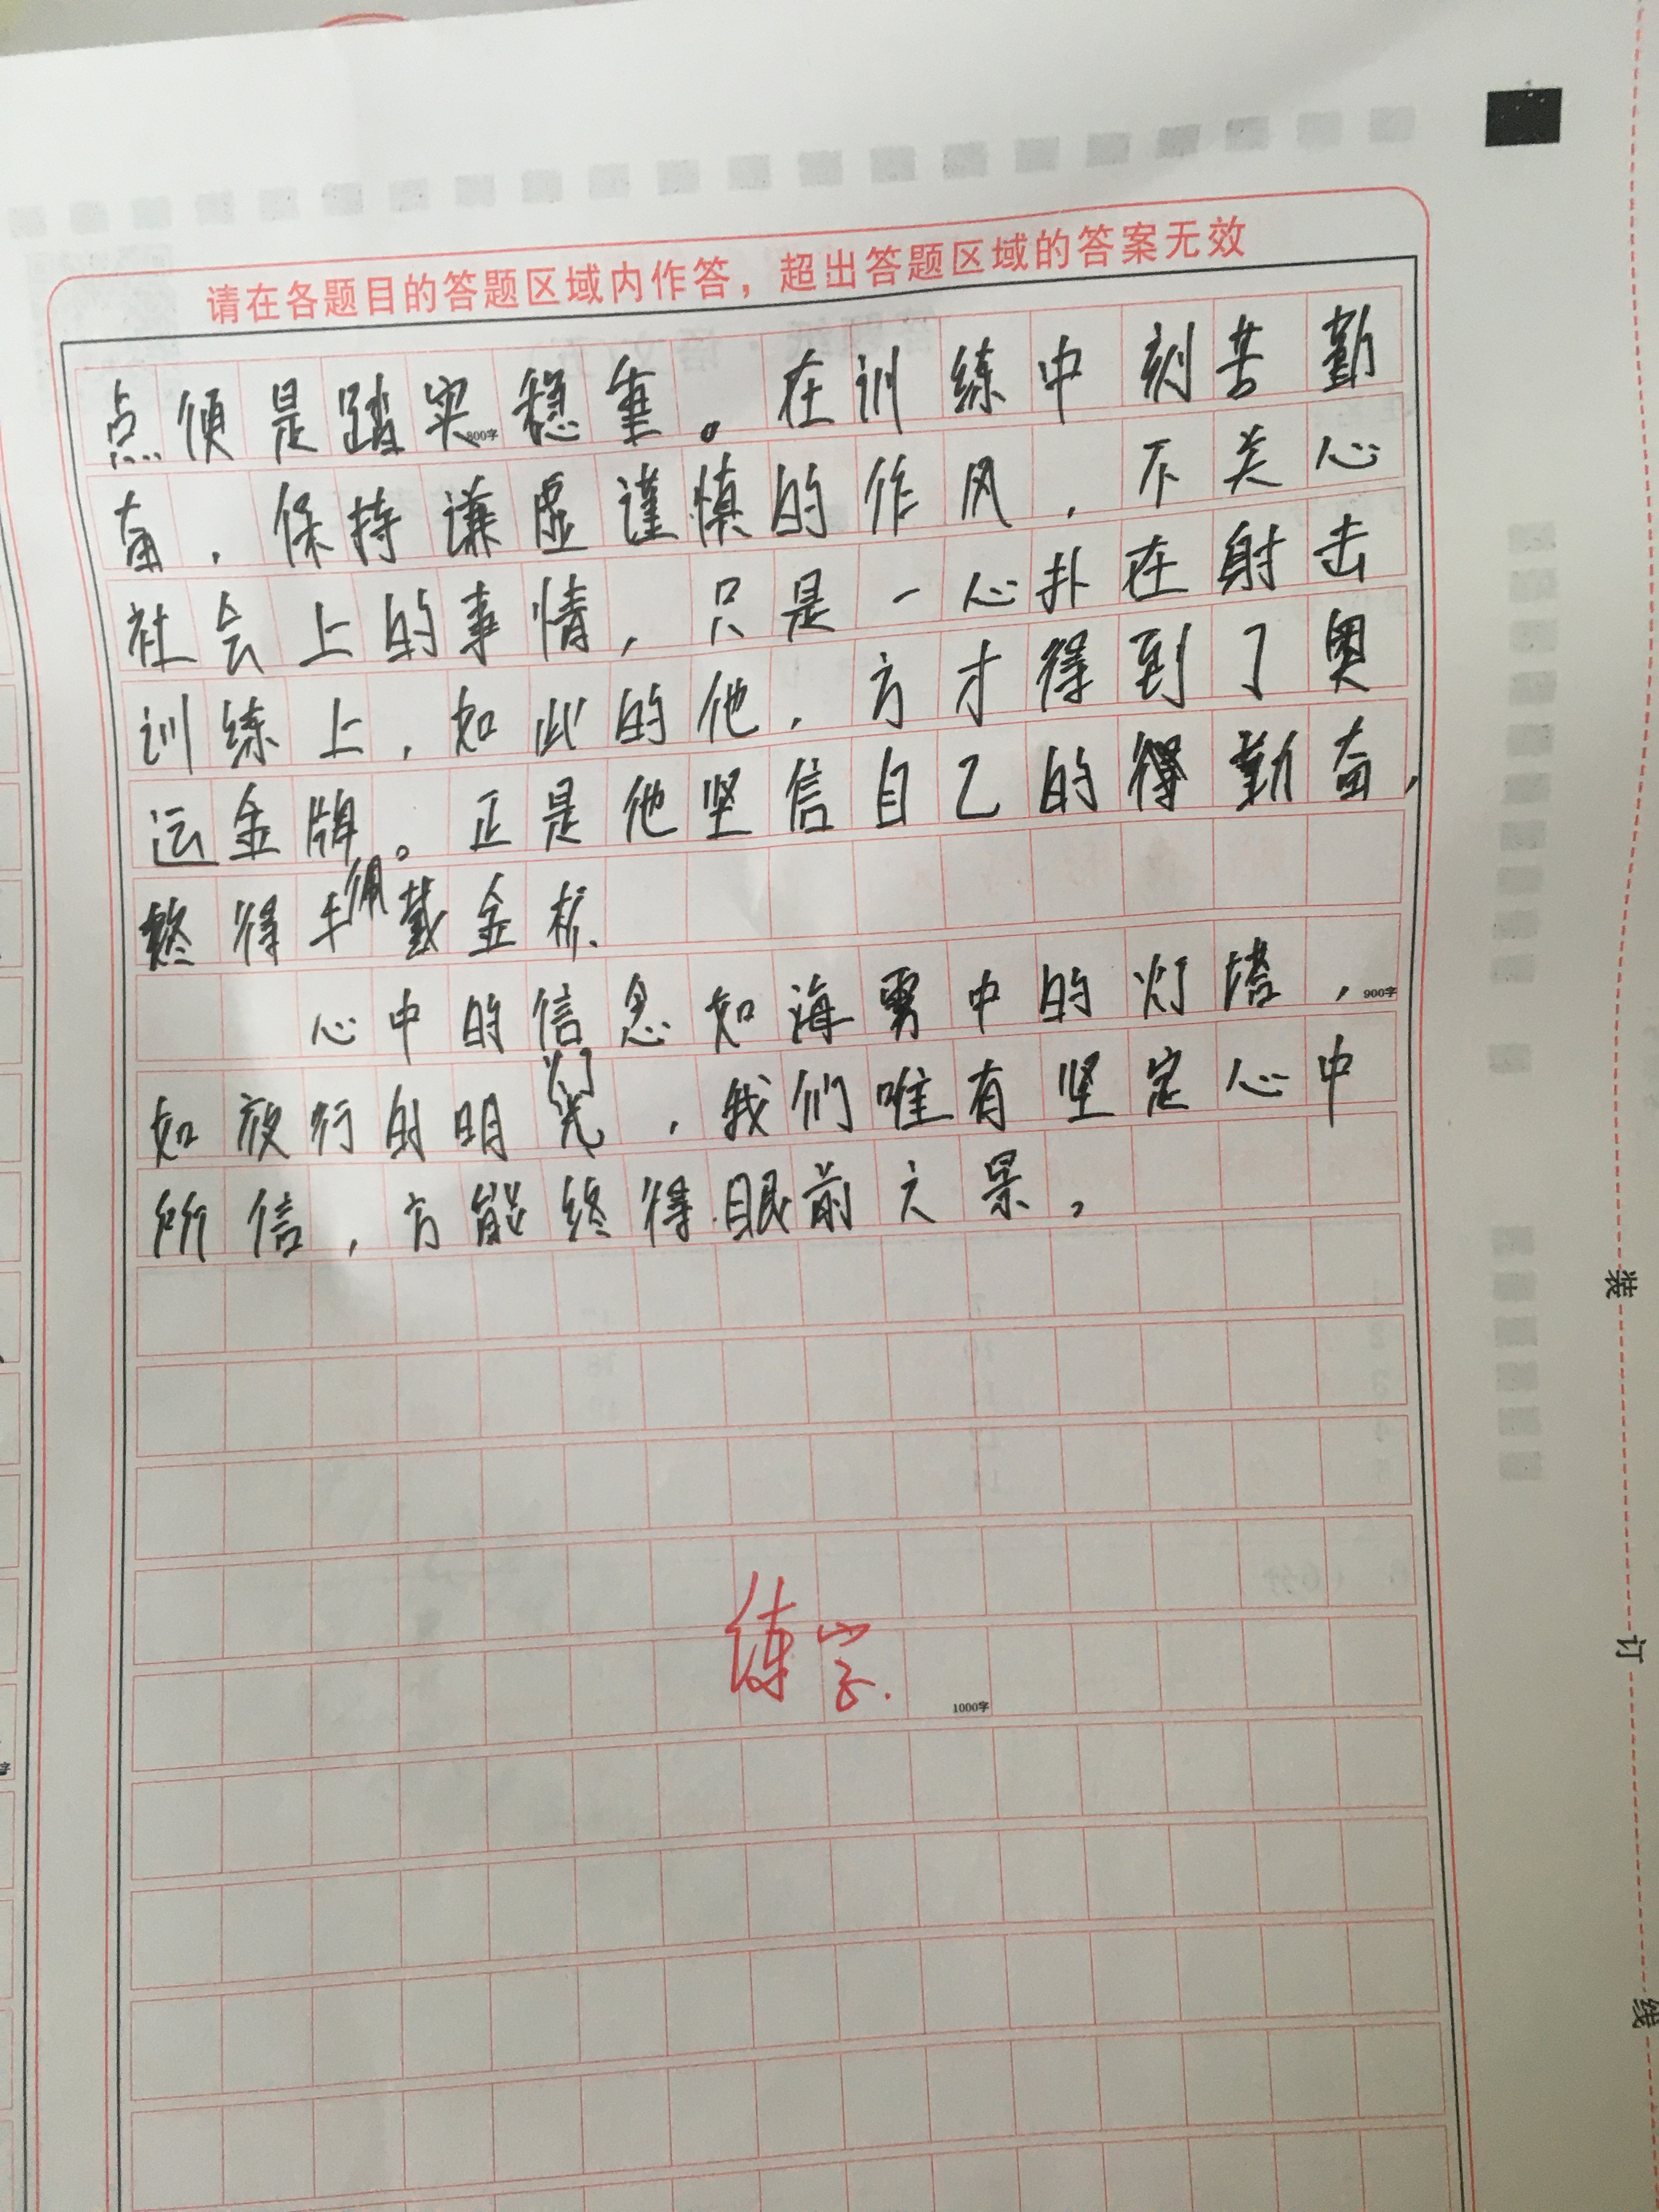 请在各题目的答题区域内作答，超出答题区域的答案无效
点便是踏实稳重。在训练中刻苦勤
800字
奋，保持谦虚谨慎的作风，不关心
社会上的事情，只是一心扑在射击
训练上，如此的他，方才得到了奥
运金牌。正是他坚信自己的得勤奋，
终得手佩戴金标
心中的信念如海雾中的灯塔，
900字
如夜行的明灯光，我们唯有坚定心中
所信，方能终得眼前之景。
练字.
1000字
装
订
线